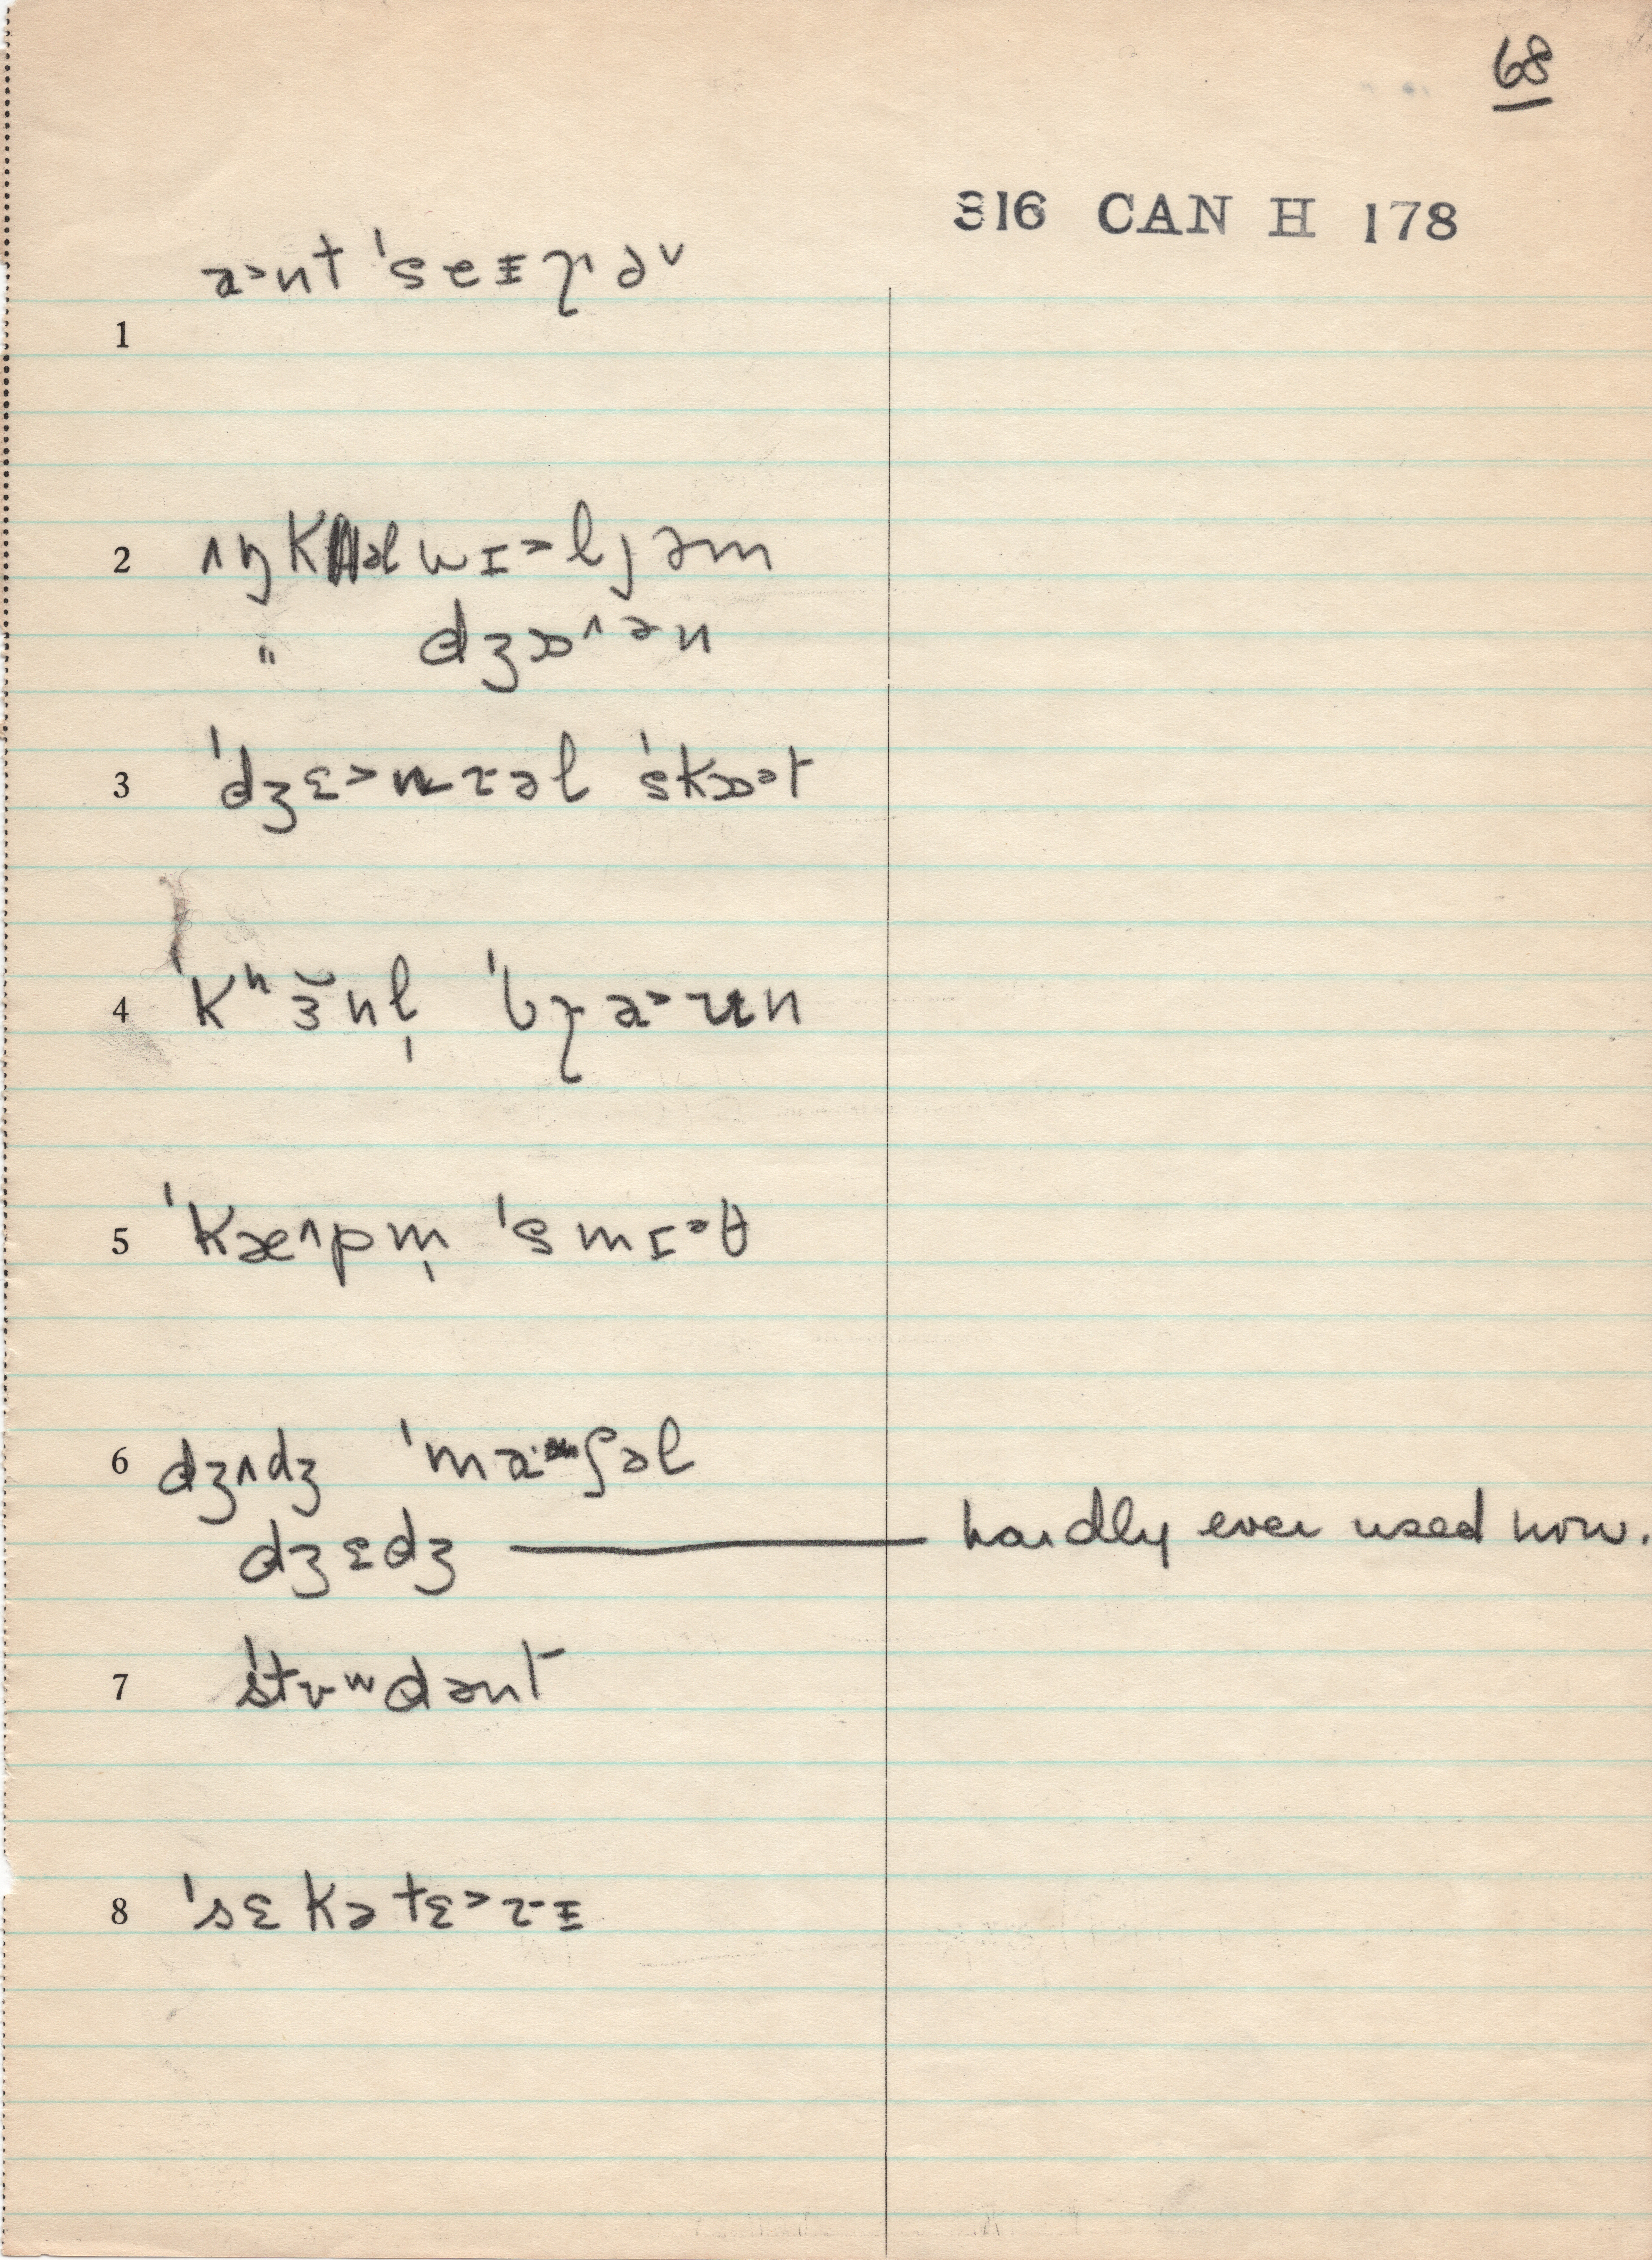 68
316 CAN H 178
a˃nt ˈseᵻɽə˅
1
2 ʌŋkəl wɪ˃ljəm
" dʒɒ˄ən
3 ˈdʒɛ˃nrəl ˈskɒ˃t
4 ˈkʰɜ̆nl̩ ˈbɽa˃ʊn
5 ˈkæ˄pm̩ ˈsmɪ˃θ
6 dʒʌdʒ ˈmaˑʃəl
dʒɛdʒ — hardly ever used now.
7 ˈstʊʷdənt
8 ˈsɛkətɛ˃rᵻ